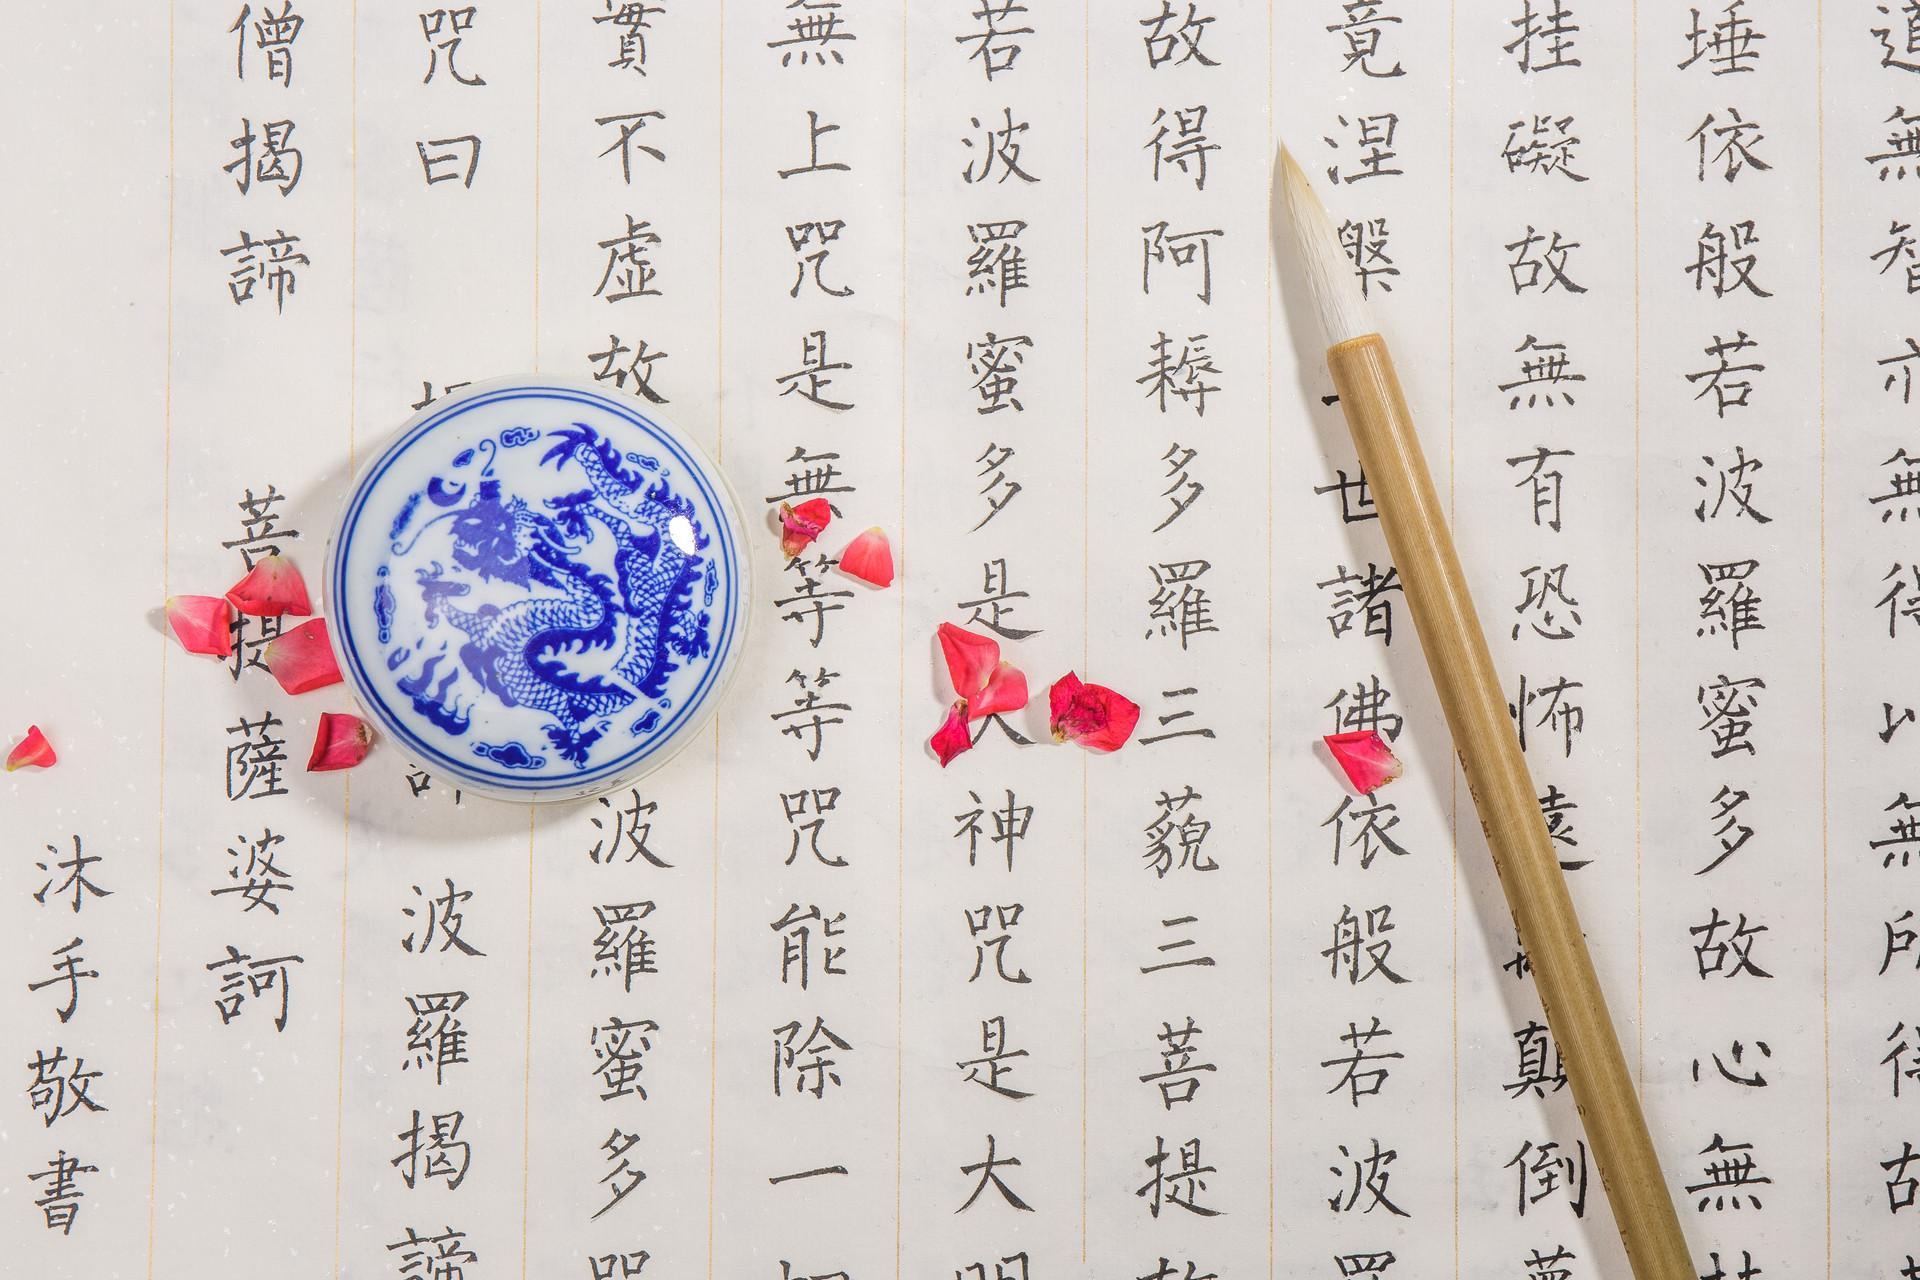 無智亦無得以無所得故
埵依般若波羅蜜多故心無
挂礙故無有恐怖遠顛倒
竟涅槃世諸佛依般若波羅
故得阿耨多羅三藐三菩提故
若波羅蜜多是大神咒是大明
無上咒是無等等咒能除一切
實不虛故波羅蜜多咒
咒曰波羅揭諦
僧揭諦菩提薩婆訶
沐手敬書